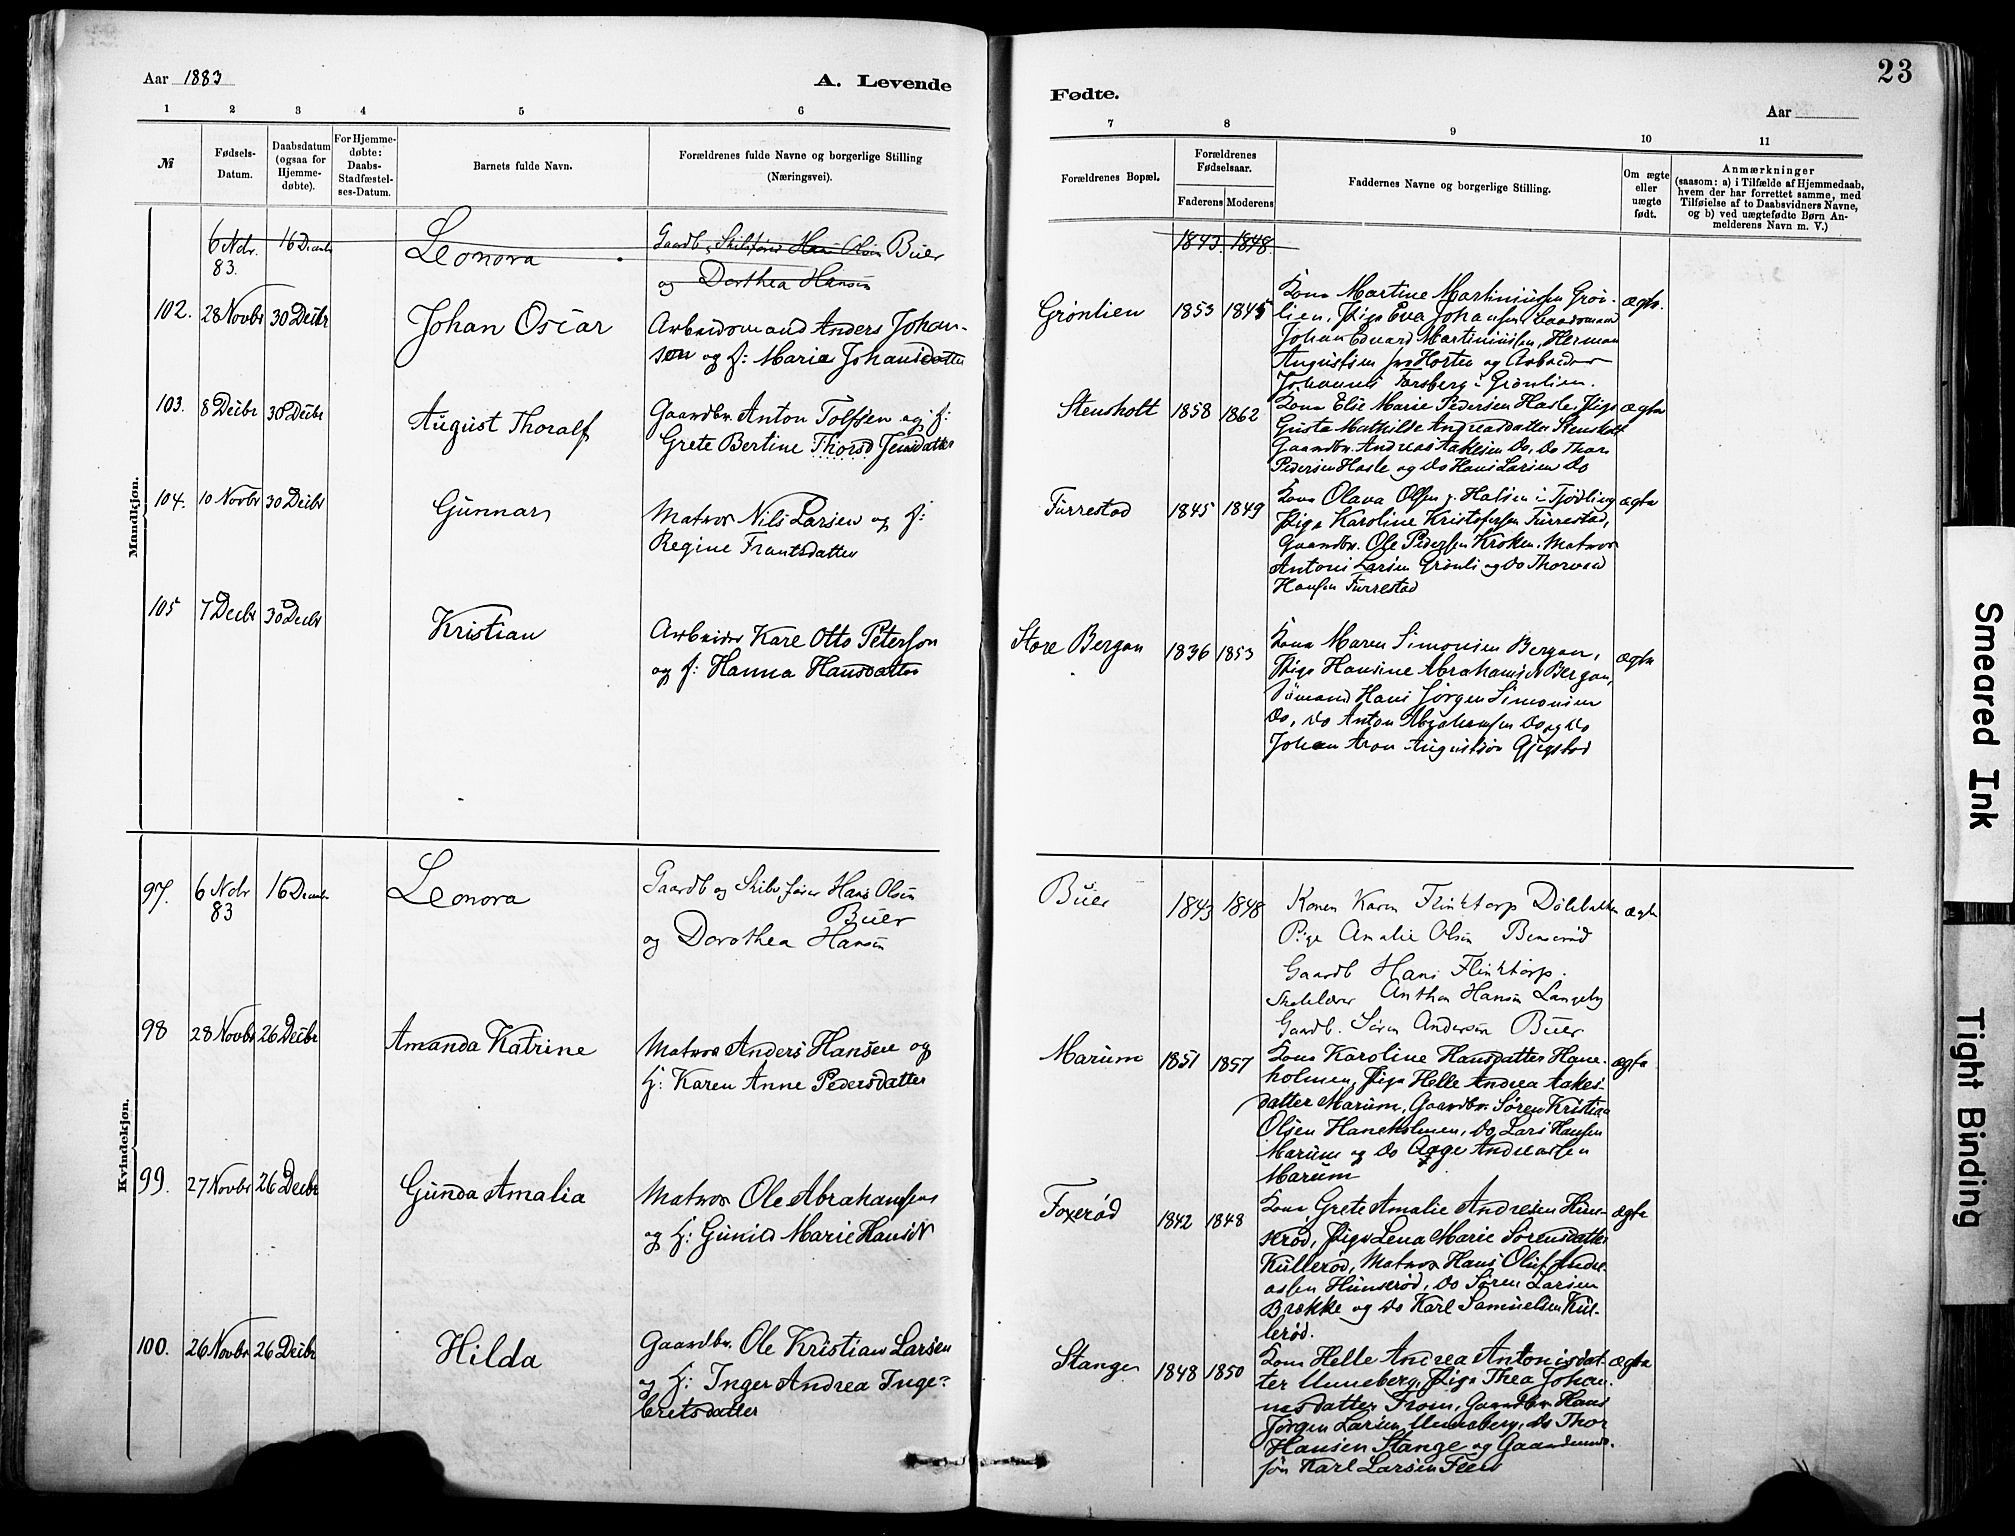 Aar 1883
A. Levende
1 2 3 4 5 6
№
Fødsels-
Datum.
Daabsdatum
(ogsaa for
Hjemme-
døbte).
For Hjemme-
døbte:
Daabs-
Stadfæstel-
ses-Datum.
Barnets fulde Navn.
Forældrenes fulde Navne og borgerlige Stilling
(Næringsvei).
Mandkjøn.
6 Nvbr. 83. 16 Decmbr
Leonora
Gaardb. Skibsfører Hans Olsen Buer
og Dorthea Hansen
102. 28 Novbr 30 Decbr
Johan Oscar
Arbeidsmand Anders Johan-
sen og H: Marie Johansdatter
103. 8 Decbr 30 Decbr
August Thoralf
Gaardbr. Anton Tolfsen og H:
Grete Bertine Jensdatter
104. 10 Novbr 30 Decbr
Gunnar
Matros Nils Larsen og H:
Regine Frantsdatter
105 7 Decbr 30 Decbr
Kristian
Arbeider Karl Otto Peterson
og H: Hanna Hansdatter
Kvindekjøn.
97. 6 Nvbr 83 16 Decmbr
Leonora
Gaardb og Skibsfører Hans Olsen
Buer
og Dorothea Hansen
98 28 Novbr 26 Decbr
Amanda Katrine
Matros Anders Hansen og
H: Karen Anne Pedersdatter
99. 27 Novbr 26 Decbr
Gunda Amalia
Matros Ole Abrahamsen
og H: Gunild Marie Hansdt
100. 26 Novbr 26 Decbr
Hilda
Gaardbr. Ole Kristian Larsen
og H: Inger Andrea Inge-
bretsdatter
23
Fødte.
Aar
7 8 9 10 11
Forældrenes Bopæl.
Forældrenes
Fødselsaar.
Faderens Moderens
Faddernes Navne og borgerlige Stilling.
Om ægte
eller
uægte
født.
Anmærkninger
(saasom: a) i Tilfælde af Hjemmedaab,
hvem der har forrettet samme, med
Tilføielse af to Daabsvidners Navne,
og b) ved uægtefødte Børn An-
melderens Navn m. V.)
1843. 1848.
Grønlien 1853 1845
Kona Martine Martiniusen Grøn-
lien, Pige Eva Johansen, Baadsmand
Johan Edvard Martiniusen, Herman
Augustsen paa Horten og Arbeider
Johannes Forsberg i Grønlien.
ægte.
Stensholt 1858 1862
Kona Else Marie Pedersen Hasle, Pige
Gusta Mathilde Andreasdatter Stensholt
Gaardbr. Andreas Aakesen Do, Do Thor
Pedersen Hasle og Do Hans Larsen Do
ægte
Furrestad 1845 1849
Kona Olava Olsen p. Halsen i Tjødling
Pige Karoline Kristofersen Furrestad,
Gaardbr. Ole Pedersen Kroken. Matros
Antoni Larsen Grønli og Do Thorvald
Hansen Furrestad
ægte
Store Bergan 1836 1853
Kona Maren Simonsen Bergan,
Pige Hansine Abrahamsdt Bergan,
Sømand Hans Jørgen Simonsen
Do, Do Anton Abrahamsen Do og Do
Johan Aron Augustson Gjegstad
ægte
Buer 1843 1848
Konen Karen Flinktorp Dølebakken
Pige Amalie Olsen Bensrød
Gaardb Hans Flinktorp.
Skolelærer Anthon Hansen Langeby
Gaardb. Søren Andersen Buer
ægte
Marum 1851 1857
Kona Karoline Hansdatter Hane-
holmen, Pige Helle Andrea Aakes-
datter Marum, Gaardbr. Søren Kristian
Olsen Haneholmen, Do Lars Hansen
Marum og Do Aage Andreassen
Marum
ægte
Foxerød 1842 1848
Kona Grete Amalie Andresen Hun-
serød, Pige Lena Marie Sørensdatter
Kullerød, Matros Hans Oluf Andre-
assen Hunserød, Do Søren Larsen
Brække og Do Karl Samuelsen Kul-
lerød.
ægte
Stange 1848 1850
Kona Helle Andrea Antonisdat-
ter Unneberg, Pige Thea Johan-
nesdatter From, Gaardbr. Hans
Jørgen Larsen Unneberg, Do Thor
Hansen Stange og Gaardmands-
søn Karl Larsen Feen
ægte
Smeared Ink
Tight Binding